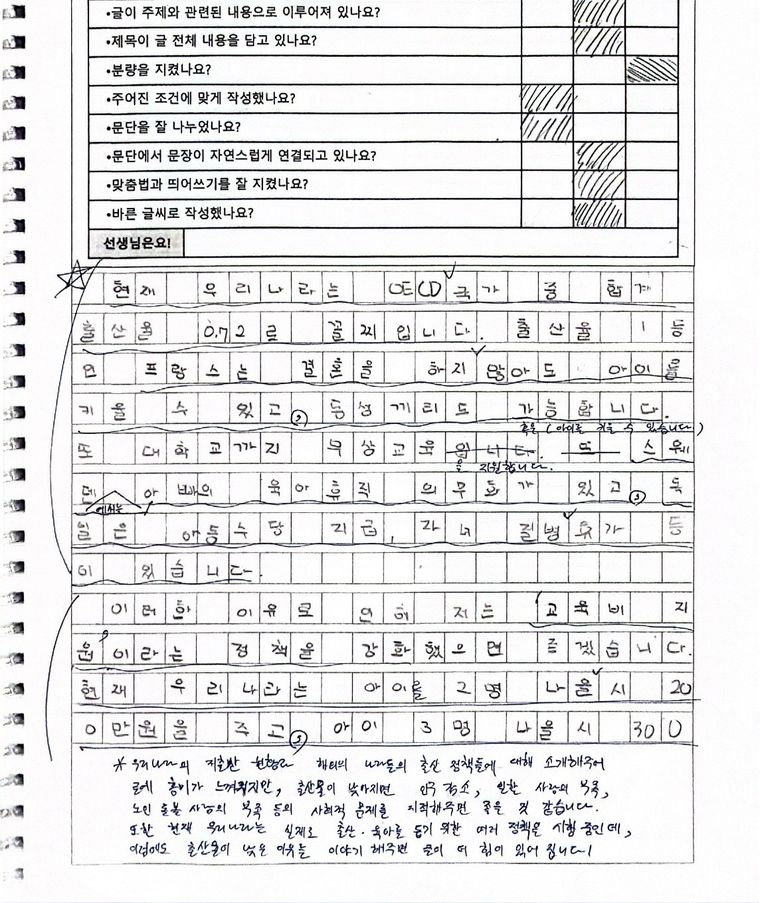 •글이 주제와 관련된 내용으로 이루어져 있나요?
•제목이 글 전체 내용을 담고 있나요?
•분량을 지켰나요?
•주어진 조건에 맞게 작성했나요?
•문단을 잘 나누었나요?
•문단에서 문장이 자연스럽게 연결되고 있나요?
•맞춤법과 띄어쓰기를 잘 지켰나요?
•바른 글씨로 작성했나요?
선생님은요!
현재 우리나라는 OECD국가 중 합계
출산율 0.72로 꼴찌입니다. 출산율 1등
인 프랑스는 결혼을 하지 않아도 아이를
키울 수 있고, 동성 커플 가능합니다.
혹은 (아이를 키울 수 있습니다.)
또 대학교까지 무상교육입니다. 또 스웨
을 지원합니다.
덴 아빠의 육아휴직 의무화가 있고, 독
에서는
일은 아동수당 지급, 자녀 질병휴가 등
이 있습니다.
이러한 이유로 인해 저는 '교육비 지
원'이라는 정책을 강화했으면 좋겠습니다.
현재 우리나라는 아이를 2명 낳을시 20
0만원을 주고, 아이 3명 낳을시 300
* 우리나라의 저출산 현황과 해외의 나라들의 출산 정책들에 대해 소개해주어
글에 흥미가 느껴졌지만, 출산율이 낮아지면 인구 감소, 일할 사람의 부족,
노인 돌볼 사람의 부족 등의 사회적 문제를 지적해주면 좋을 것 같습니다.
또한 현재 우리나라는 실제로 출산·육아를 돕기 위한 여러 정책을 시행 중인데,
이럼에도 출산율이 낮은 이유를 이야기 해주면 글이 더 힘이 있어 집니다!